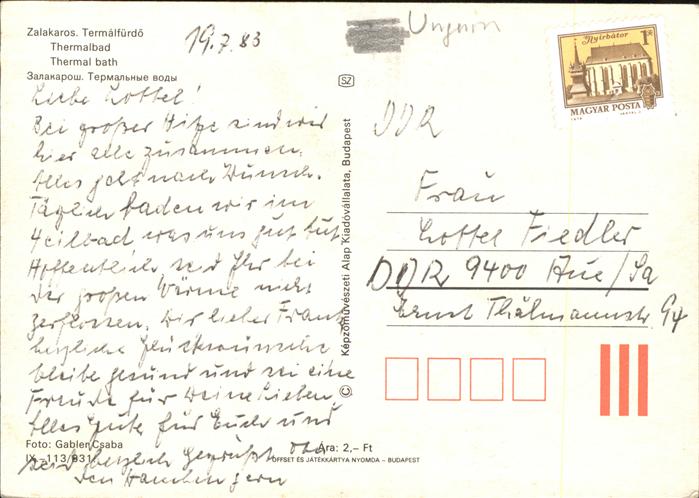 Zalakaros. Termálfürdő
Thermalbad
Thermal bath
Залакарош. Термальные воды
19.7.83
Ungarn
Nyírbátor
1 Ft
MAGYAR POSTA
SZ
Liebe Lottel!
Bei großer Hitze sind wir
hier alle zusammen.
Alles geht nach Wunsch.
Täglich baden wir im
Heilbad was uns gut tut
Hoffentlich seid Ihr bei
der großen Wärme nicht
zerflossen. Dir lieber Franz
herzliche Glückwünsche
bleibe gesund und sei eine
Freude für Deine Lieben.
Alles gute für Euch und
seid herzlich gegrüßt
den Hamburgern
DDR
Frau
Lottel Fiedler
DDR 9400 Aue/Sa
Ernst Thälmannstr. 94
© Képzőművészeti Alap Kiadóvállalata, Budapest
Foto: Gabler Csaba
IX-113/831
Ára: 2,– Ft
OFFSET ÉS JÁTÉKKÁRTYA NYOMDA – BUDAPEST